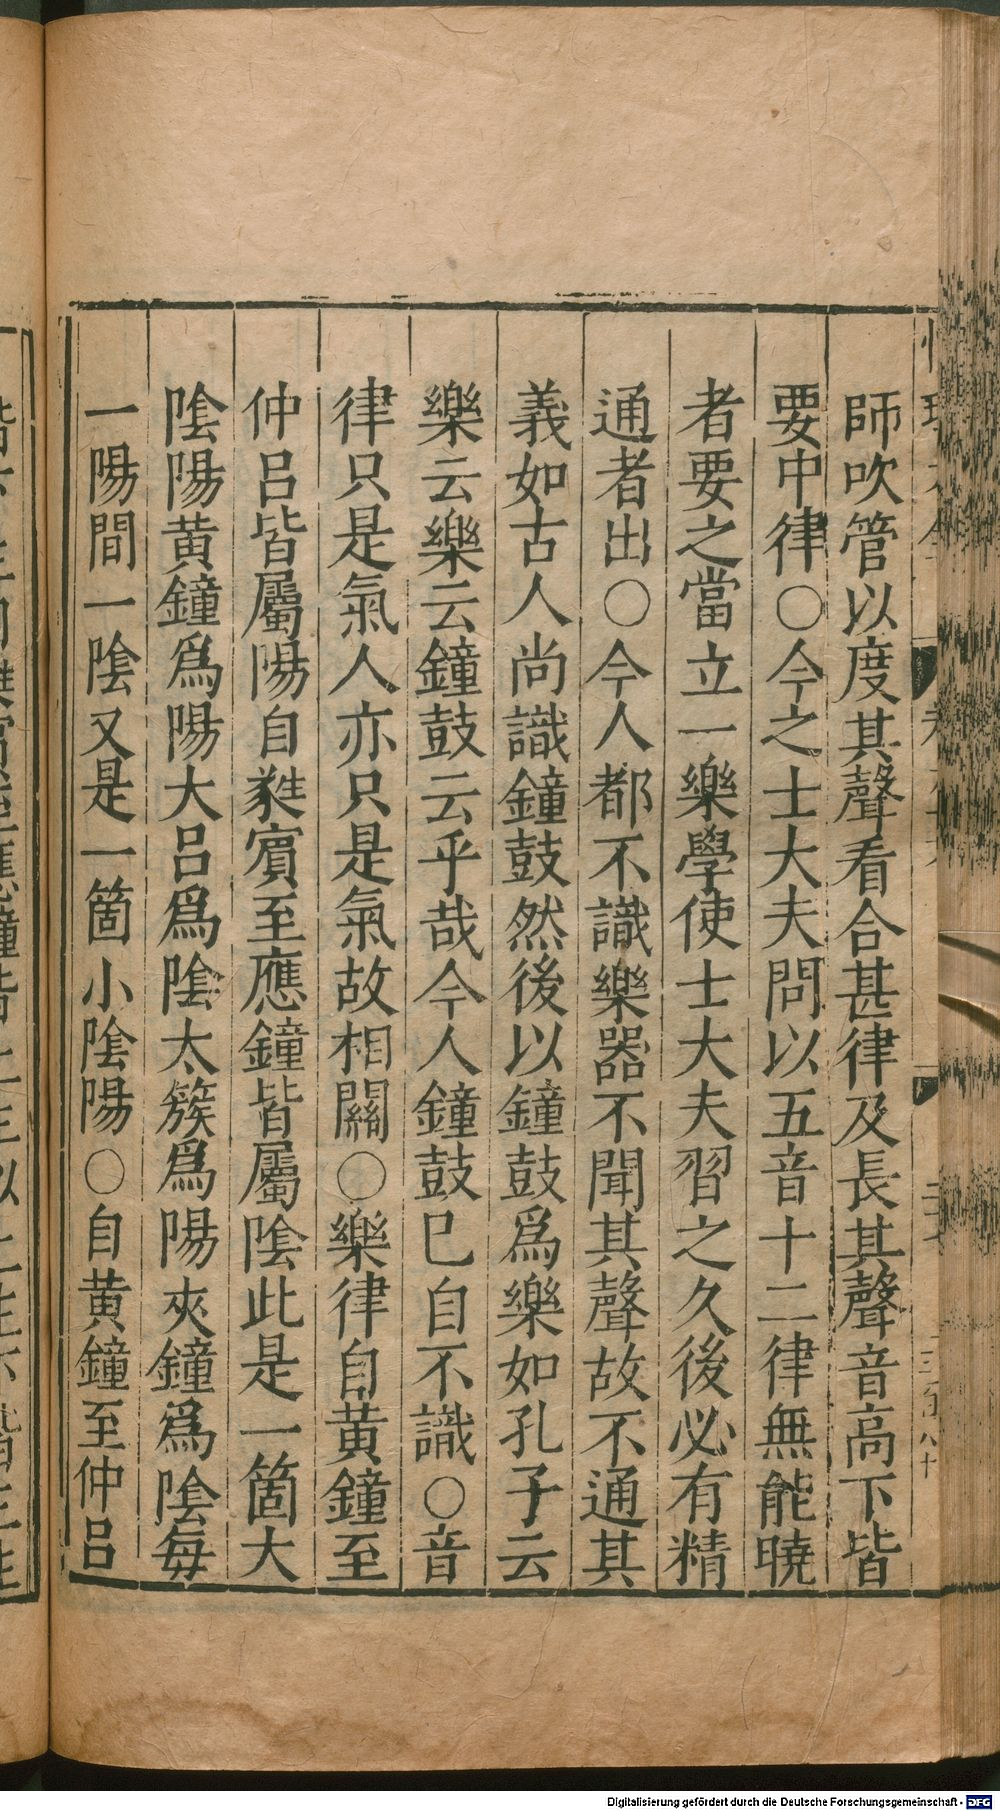 師吹管以度其聲看合甚律及長其聲音高下皆
要中律○今之士大夫問以五音十二律無能曉
者要之當立一樂學使士大夫習之久後必有精
通者出○今人都不識樂器不聞其聲故不通其
義如古人尚識鐘鼓然後以鐘鼓爲樂如孔子云
樂云樂云鐘鼓云乎哉今人鐘鼓已自不識○音
律只是氣人亦只是氣故相關○樂律自黄鐘至
仲呂皆屬陽自蕤賓至應鐘皆屬陰此是一箇大
陰陽黄鐘爲陽大呂爲陰太簇爲陽夾鐘爲陰每
一陽間一陰又是一箇小陰陽○自黄鐘至仲呂
Digitalisierung gefördert durch die Deutsche Forschungsgemeinschaft - DFG